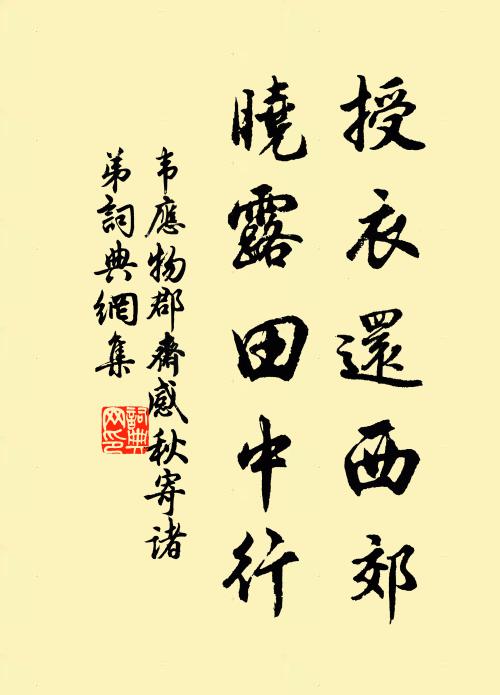 授衣還西郊
曉露田中行
韦應物郡齋感秋寄諸
弟詞典網集
詞典網印